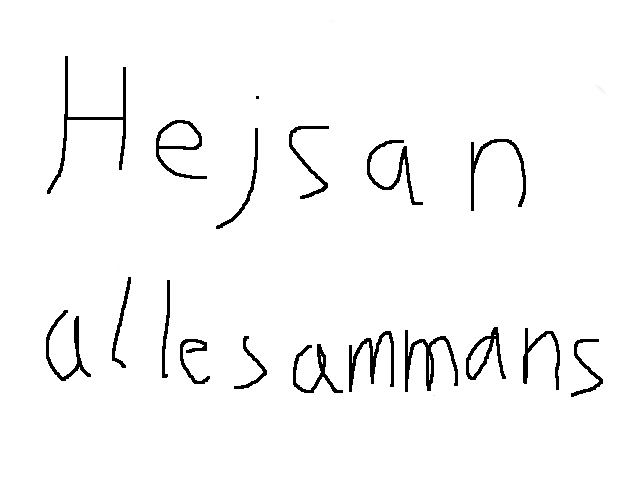 Hejsan
allesammans